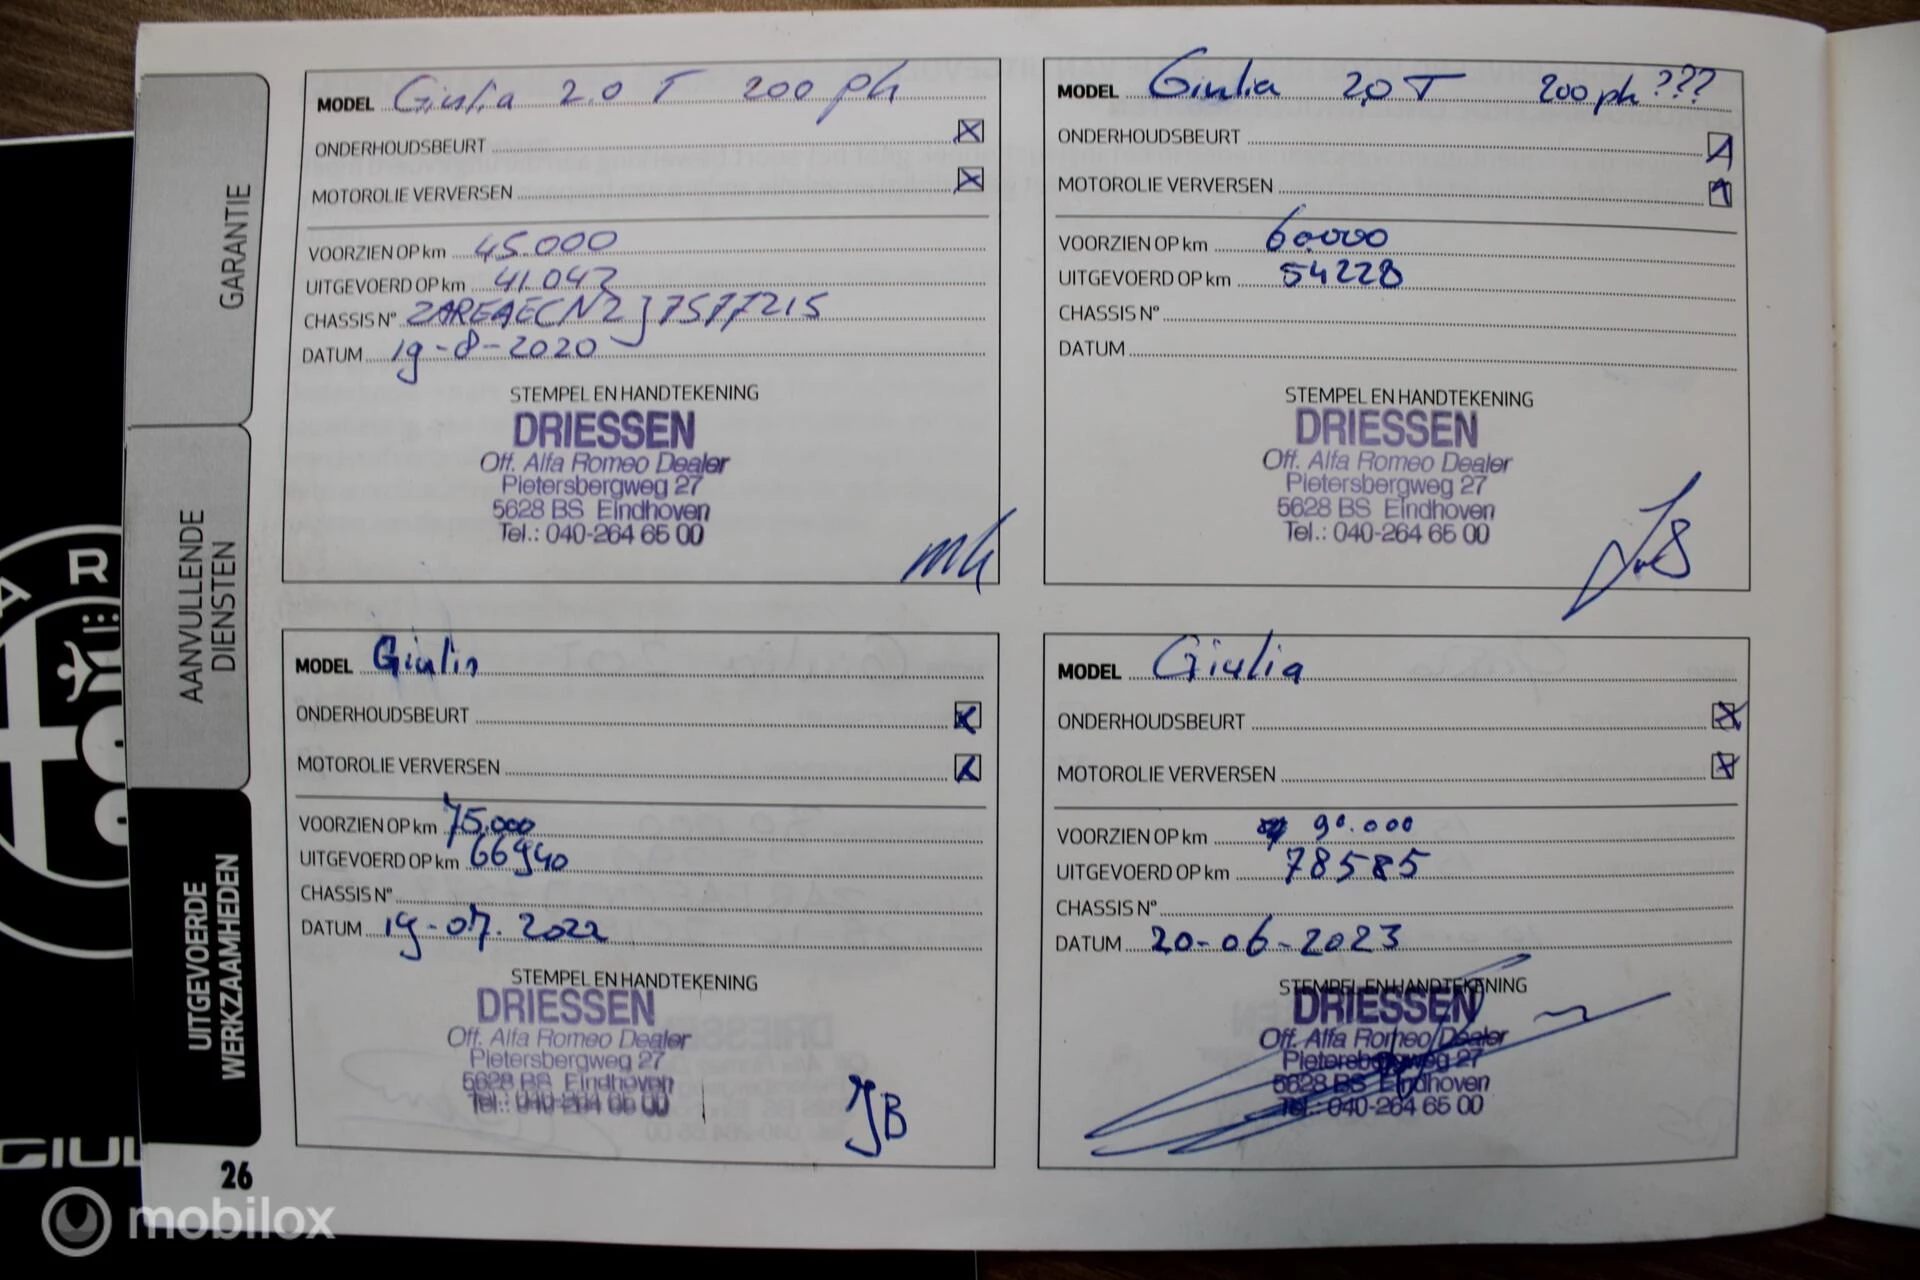 GARANTIE
AANVULLENDE
DIENSTEN
UITGEVOERDE
WERKZAAMHEDEN
MODEL Giulia 2.0 T 200 ph
ONDERHOUDSBEURT
MOTOROLIE VERVERSEN
VOORZIEN OP km 45.000
UITGEVOERD OP km 41.042
CHASSIS N° ZAREAECN2J7577215
DATUM 19-8-2020
STEMPEL EN HANDTEKENING
DRIESSEN
Off. Alfa Romeo Dealer
Pietersbergweg 27
5628 BS Eindhoven
Tel.: 040-264 65 00
MODEL Giulia 2.0 T 200 ph ???
ONDERHOUDSBEURT
MOTOROLIE VERVERSEN
VOORZIEN OP km 60.000
UITGEVOERD OP km 54228
CHASSIS N°
DATUM
STEMPEL EN HANDTEKENING
DRIESSEN
Off. Alfa Romeo Dealer
Pietersbergweg 27
5628 BS Eindhoven
Tel.: 040-264 65 00
MODEL Giulia
ONDERHOUDSBEURT
MOTOROLIE VERVERSEN
VOORZIEN OP km 75.000
UITGEVOERD OP km 66940
CHASSIS N°
DATUM 19-07-2022
STEMPEL EN HANDTEKENING
DRIESSEN
Off. Alfa Romeo Dealer
Pietersbergweg 27
5628 BS Eindhoven
Tel.: 040-264 65 00
JB
MODEL Giulia
ONDERHOUDSBEURT
MOTOROLIE VERVERSEN
VOORZIEN OP km 90.000
UITGEVOERD OP km 78585
CHASSIS N°
DATUM 20-06-2023
STEMPEL EN HANDTEKENING
DRIESSEN
Off. Alfa Romeo Dealer
Pietersbergweg 27
5628 BS Eindhoven
Tel.: 040-264 65 00
26
GIUL
mobilox